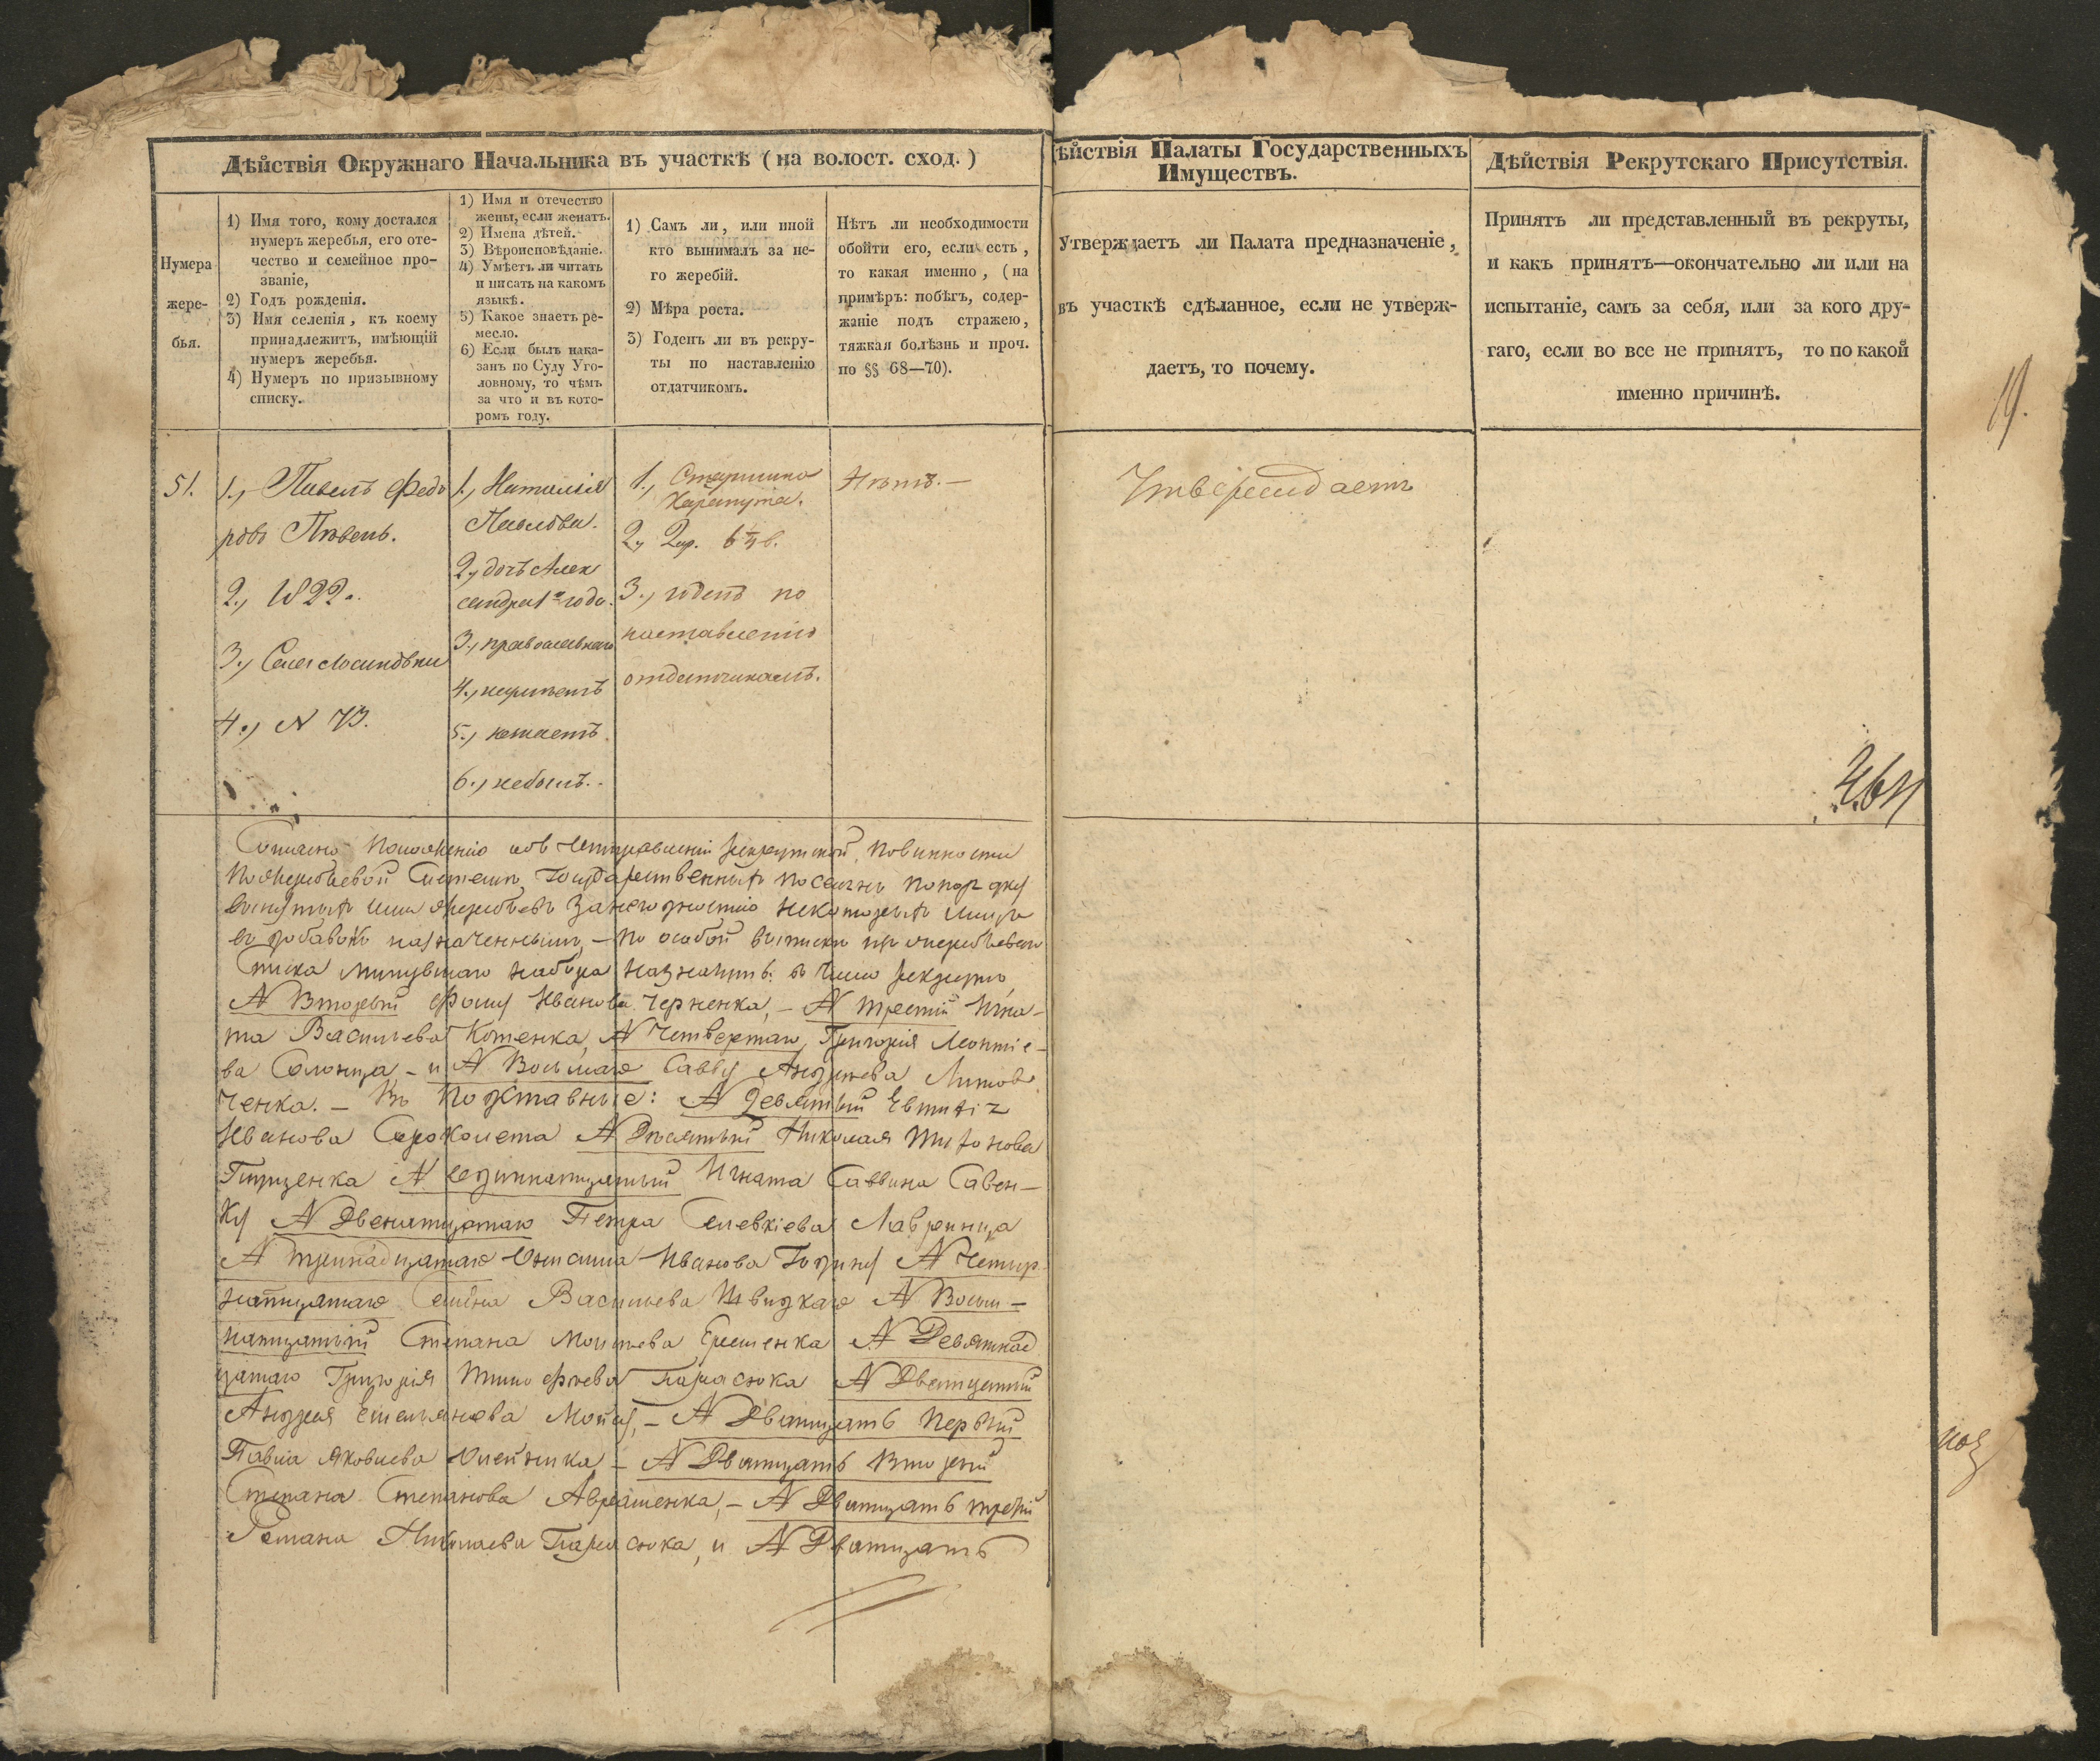 Дѣйствія Окружнаго Начальника въ участкѣ (на волост. сход.)
Нумера
жере-
бья.
1) Имя того, кому достался
нумеръ жеребья, его оте-
чество и семейное про-
званіе,
2) Годъ рожденія.
3) Имя селенія, къ коему
принадлежитъ, имѣющій
нумеръ жеребья.
4) Нумеръ по призывному
списку.
1) Имя и отечество
жены, если женатъ.
2) Имена дѣтей.
3) Вѣроисповѣданіе.
4) Умѣетъ ли читать
и писать на какомъ
языкѣ.
5) Какое знаетъ ре-
месло.
6) Если былъ нака-
занъ по Суду Уго-
ловному, то чѣмъ
за что и въ кото-
ромъ году.
1) Самъ ли, или иной
кто вынималъ за не-
го жеребій.
2) Мѣра роста.
3) Годенъ ли въ рекру-
ты по наставленію
отдатчикомъ.
Нѣтъ ли необходимости
обойти его, если есть,
то какая именно, (на
примѣръ: побѣгъ, содер-
жаніе подъ стражею,
тяжкая болѣзнь и проч.
по §§ 68—70).
ѣйствія Палаты Государственныхъ
Имуществъ.
Утверждаетъ ли Палата предназначеніе,
въ участкѣ сдѣланное, если не утверж-
даетъ, то почему.
Дѣйствія Рекрутскаго Присутствія.
Принятъ ли представленный въ рекруты,
и какъ принятъ—окончательно ли или на
испытаніе, самъ за себя, или за кого дру-
гаго, если во все не принятъ, то по какой
именно причинѣ.
19.
51.
1., Павелъ Федо
ровъ Пѣвень.
2., 1822.
3., Села Лосиновки
4., N 73.
1., Наталія
Павлова.
2., дочь Алек
сандра 1 года.
3., православнаго
4., неумѣетъ
5., незнаетъ.
6., небылъ.
1., Старшина
2., 2 ар. 6 1/4 в.
3., годенъ по
наставленію
отдатчикамъ.
Нѣтъ.—
Утверждаетъ
Согласно Положенію объ рекрутской повинности
по жеребьевой Системѣ, Государственныхъ поселянъ по порядку
вынутыхъ ими жеребьевъ за негодностію некоторыхъ лицъ
въ добавокъ назначеннымъ,— по особой выписки изъ жеребьеваго
Списка минувшаго набора назначить: въ число рекрутъ
N Вторый Фому Иванова Черненка,— N третій Игна-
та Васильева Котенка, N Четвертаго, Григорія Леонтіе-
ва — и N Восьмаго Савву Андреева Литов
ченка.— Въ Подставные: N Девятый Евтихія
Иванова Сороколета N Десятый Николая
N Одиннатцатый Игната Саввина Савен-
ку N Двенатцатаго Петра Селевкіева Лавринца
N тринадцатаго Иванова N Четыр
натцатаго Семена Васильева Швидкаго N Восем-
натцатый Степана Моисеева Еременка N Девятнад
цатаго Григорія Тимофѣева Тарасюка N Дватцатый
Андрея Емельянова N Дватцать Первый
Павла Яковлева Олейника — N Дватцать Вторый
Степана Степанова Аврашенка,— N Дватцать третій
Романа Николаева Тарасюка, и N Дватцать